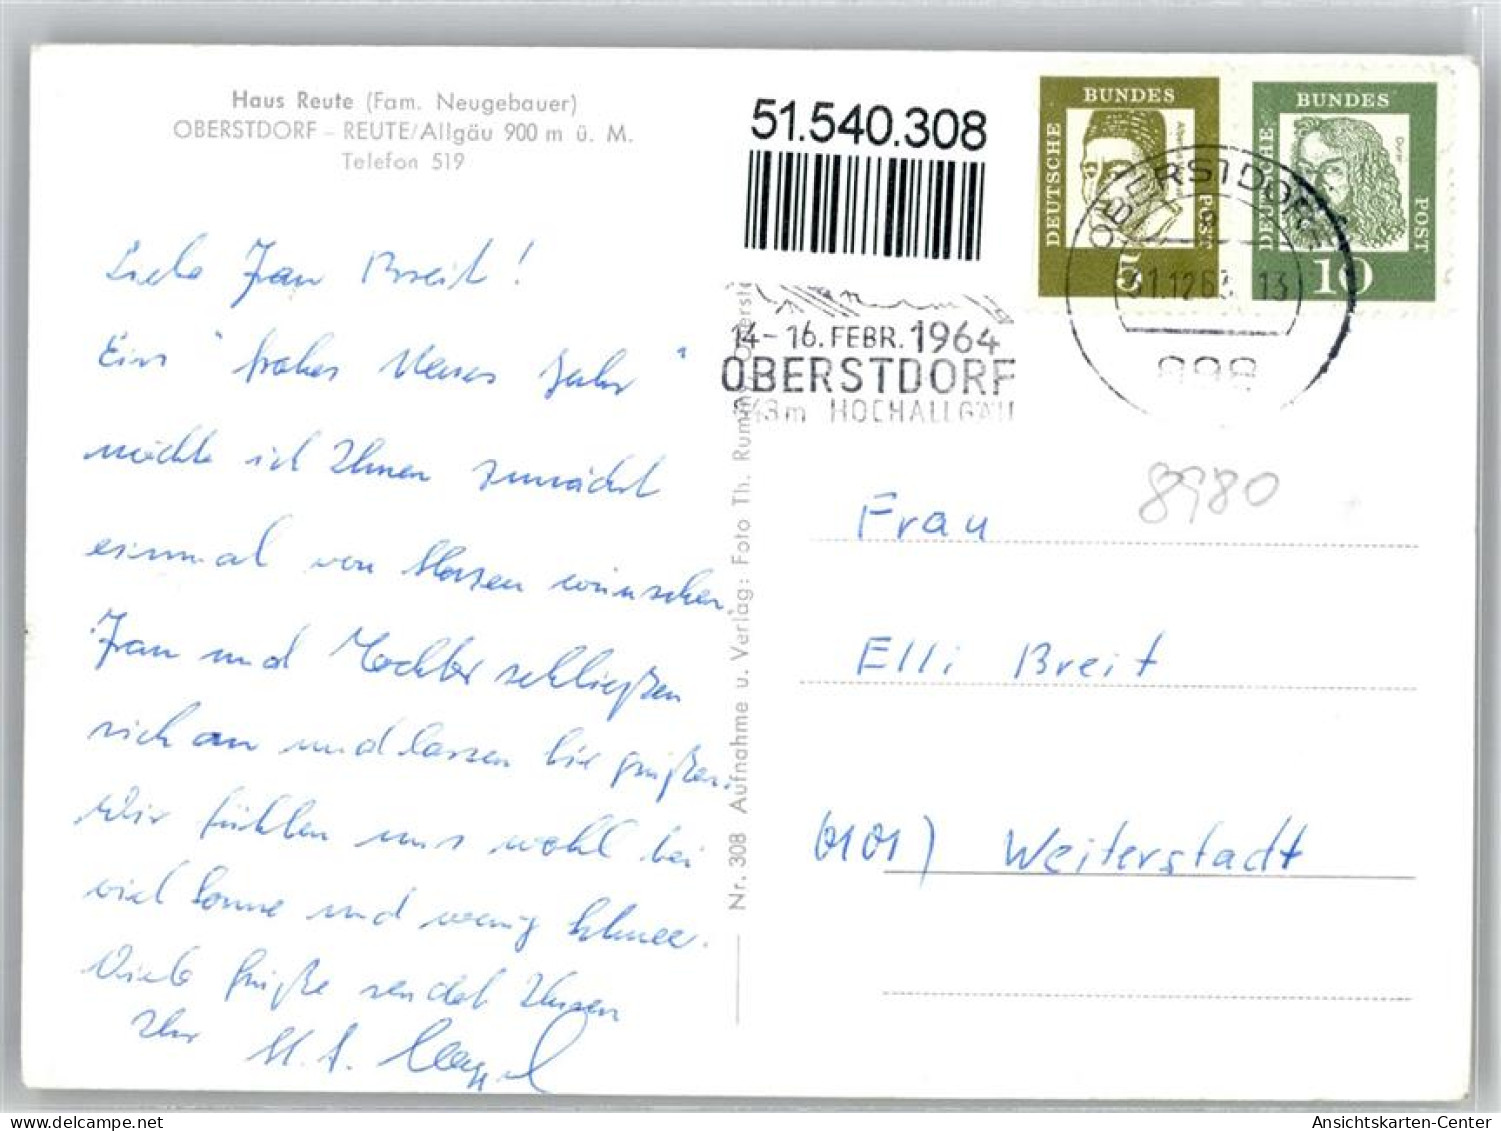 Haus Reute (Fam. Neugebauer)
OBERSTDORF – REUTE/Allgäu 900 m ü. M.
Telefon 519
Liebe Frau Breit!
Ein "frohes Neues Jahr"
möchte ich Ihnen zunächst
einmal von Herzen wünschen.
Frau und Tochter schließen
sich an und lassen Sie grüßen.
Wir fühlen uns wohl bei
viel Sonne und wenig Schnee.
Viele Grüße sendet Ihnen
Ihr
Nr. 308 Aufnahme u. Verlag: Foto Th. Rummel, Oberstd
51.540.308
14–16. FEBR. 1964
OBERSTDORF
843m HOCHALLGÄU
DEUTSCHE
BUNDES
POST
5
DEUTSCHE
BUNDES
POST
Dürer
10
OBERSTDORF
31.12.63. 13
898
8980
Frau
Elli Breit
6101) Weiterstadt
Ansichtskarten-Center